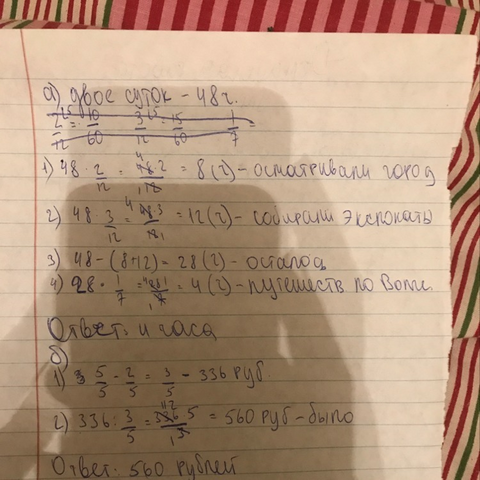 а) двое суток – 48 ч.
2/12 = 10/60 3/12 = 15/60 1/7
1) 48 · 2/12 = 48·2/12 = 8 (ч) – осматривали город
2) 48 · 3/12 = 48·3/12 = 12 (ч) – собирали экспонаты
3) 48 – (8+12) = 28 (ч) – осталось
4) 28 · 1/7 = 28·1/7 = 4 (ч) – путешеств по Волге.
Ответ: 4 часа
б)
1) 5/5 – 2/5 = 3/5 – 336 руб.
2) 336 : 3/5 = 336·5/3 = 560 руб – было
Ответ: 560 рублей